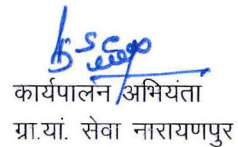 कार्यपालन अभियंता
ग्रा.यां. सेवा नारायणपुर